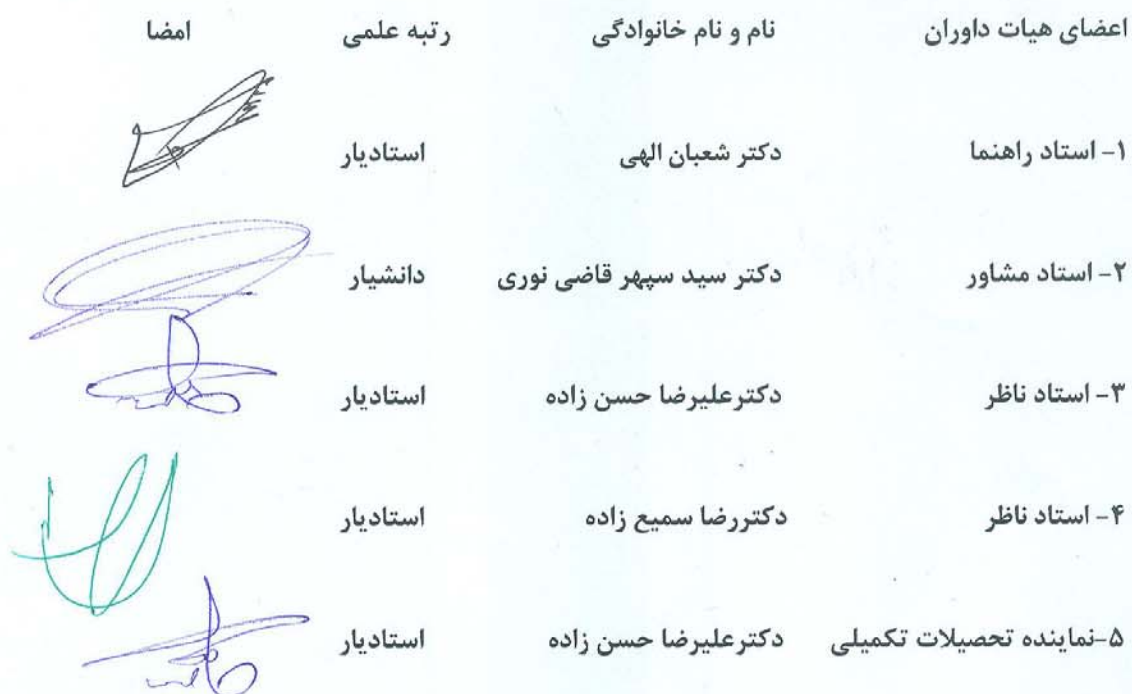 اعضای هیات داوران نام و نام خانوادگی رتبه علمی امضا
۱- استاد راهنما دکتر شعبان الهی استادیار
۲- استاد مشاور دکتر سید سپهر قاضی نوری دانشیار
۳- استاد ناظر دکترعلیرضا حسن زاده استادیار
۴- استاد ناظر دکتررضا سمیع زاده استادیار
۵-نماینده تحصیلات تکمیلی دکترعلیرضا حسن زاده استادیار